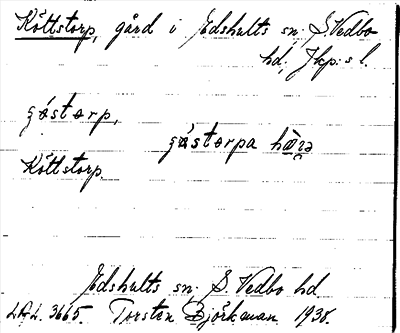 Köttstorp, gård i Edshults sn; S. Vedbo
hd, Jkp:s l.
çǿstɒrp,
çǿstɒrpa hæ̀ɹə
Köttstorp.
Edshults sn; S. Vedbo hd.
LAL. 3665. Torsten Björkman 1938.